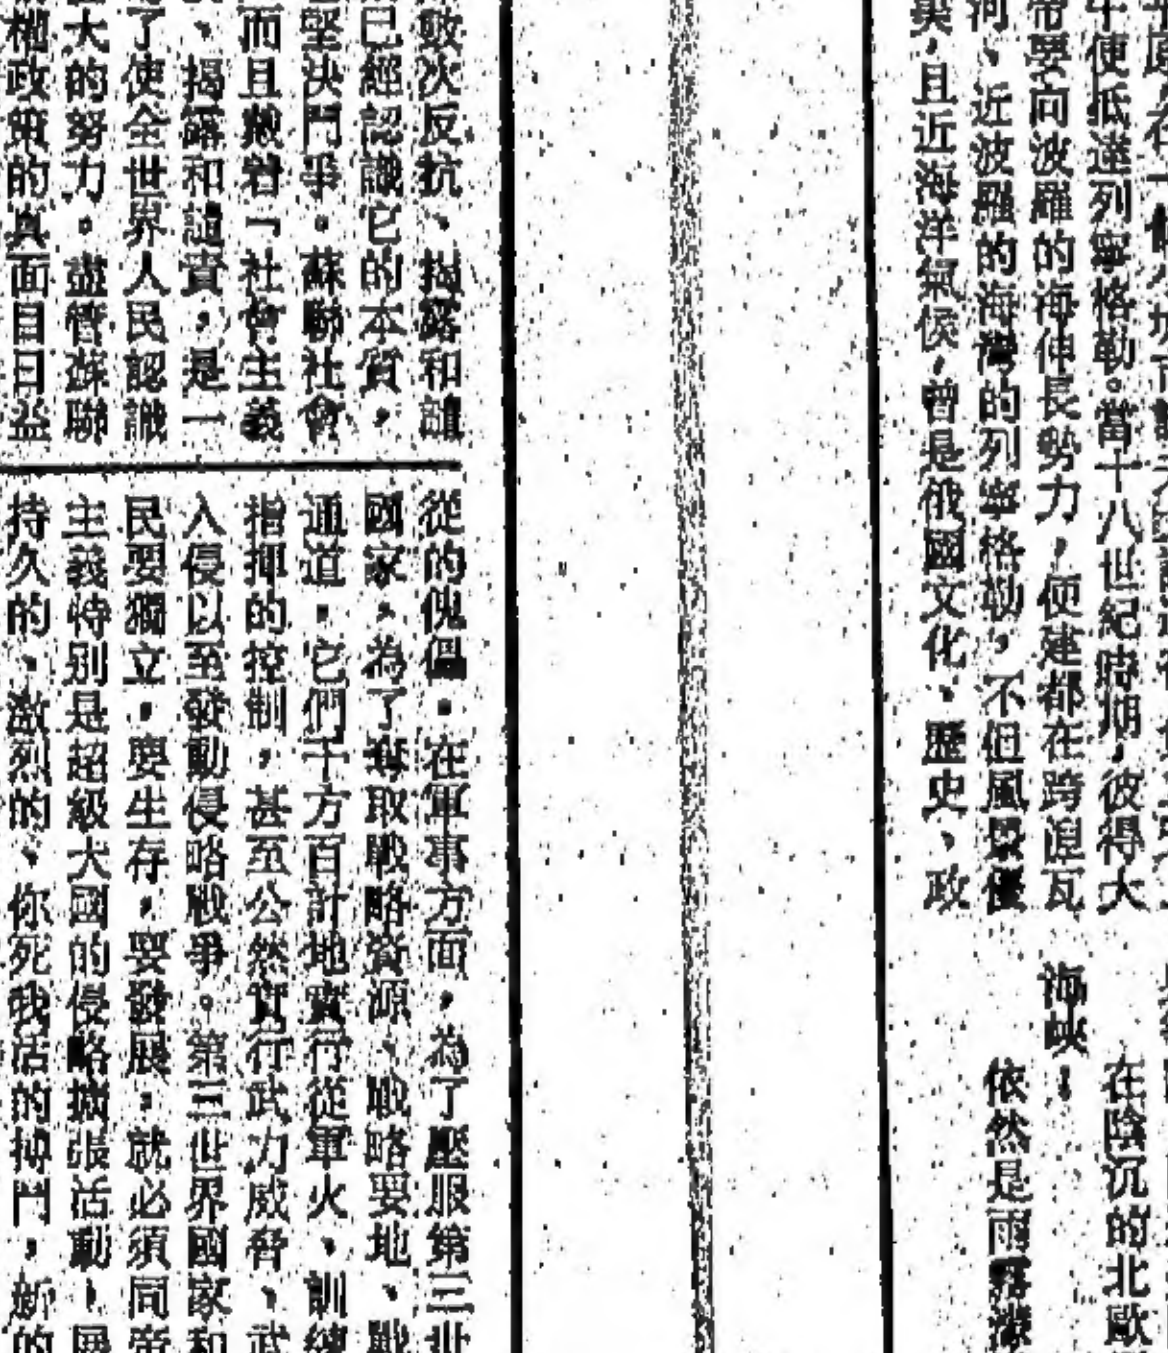 便抵達列寧格勒。當十八世紀時期,彼得大
帝要向波羅的海伸長勢力,便建都在跨涅瓦
河、近波羅的海灣的列寧格勒,不但風景優
美,且近海洋氣侯,曾是俄國文化、歷史、政
在陰沉的北歐
海峽!
依然是雨霧濛
次反抗、揭露和譴
已經認識它的本質,
堅決鬥爭。蘇聯社會
而且戴着「社會主義
、揭露和譴責,是一
了使全世界人民認識
大的努力。盡管蘇聯
政策的真面目日益
從的傀儡。在軍事方面,為了壓服第三世
國家,為了奪取戰略資源、戰略要地、戰
通道,它們千方百計地實行從軍火、訓練
指揮的控制,甚至公然實行武力威脅、武
入侵以至發動侵略戰爭。第三世界國家和
民要獨立,要生存,要發展,就必須同帝
主義特別是超級大國的侵略擴張活動、展
持久的、激烈的、你死我活的搏鬥,新的